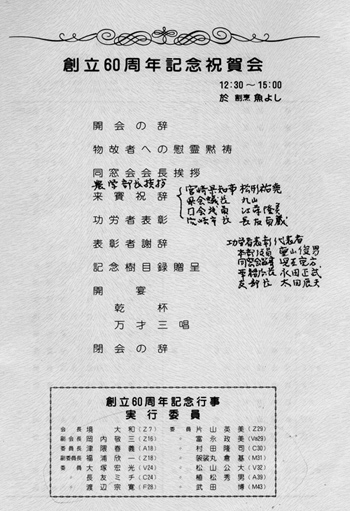 創立60周年記念祝賀会
12:30～15:00
於 割烹 魚よし
開会の辞
物故者への慰霊黙祷
同窓会会長挨拶
農学部長挨拶
来賓祝辞
宮崎県知事 松形祐堯
県会議長 丸山
功労者表彰
表彰者謝辞
功労者表彰代表者
記念樹目録贈呈
開宴
乾杯
万才三唱
閉会の辞
創立60周年記念行事
実行委員
会長 境 大和(Z7) 委員 片山英美(Z29)
副会長 岡内敬三(Z16) 〃 富永政美(Va29)
委員長 津隈春義(A18) 〃 村田隆司(C30)
副委員長 福浦欣一(Z18) 〃 袈裟丸倉基(M31)
委員 大塚宏光(V24) 〃 松山公大(V32)
〃 長友ミチ(C24) 〃 椿松秀男(A39)
〃 渡辺宗寛(F28) 〃 武田博(M43)